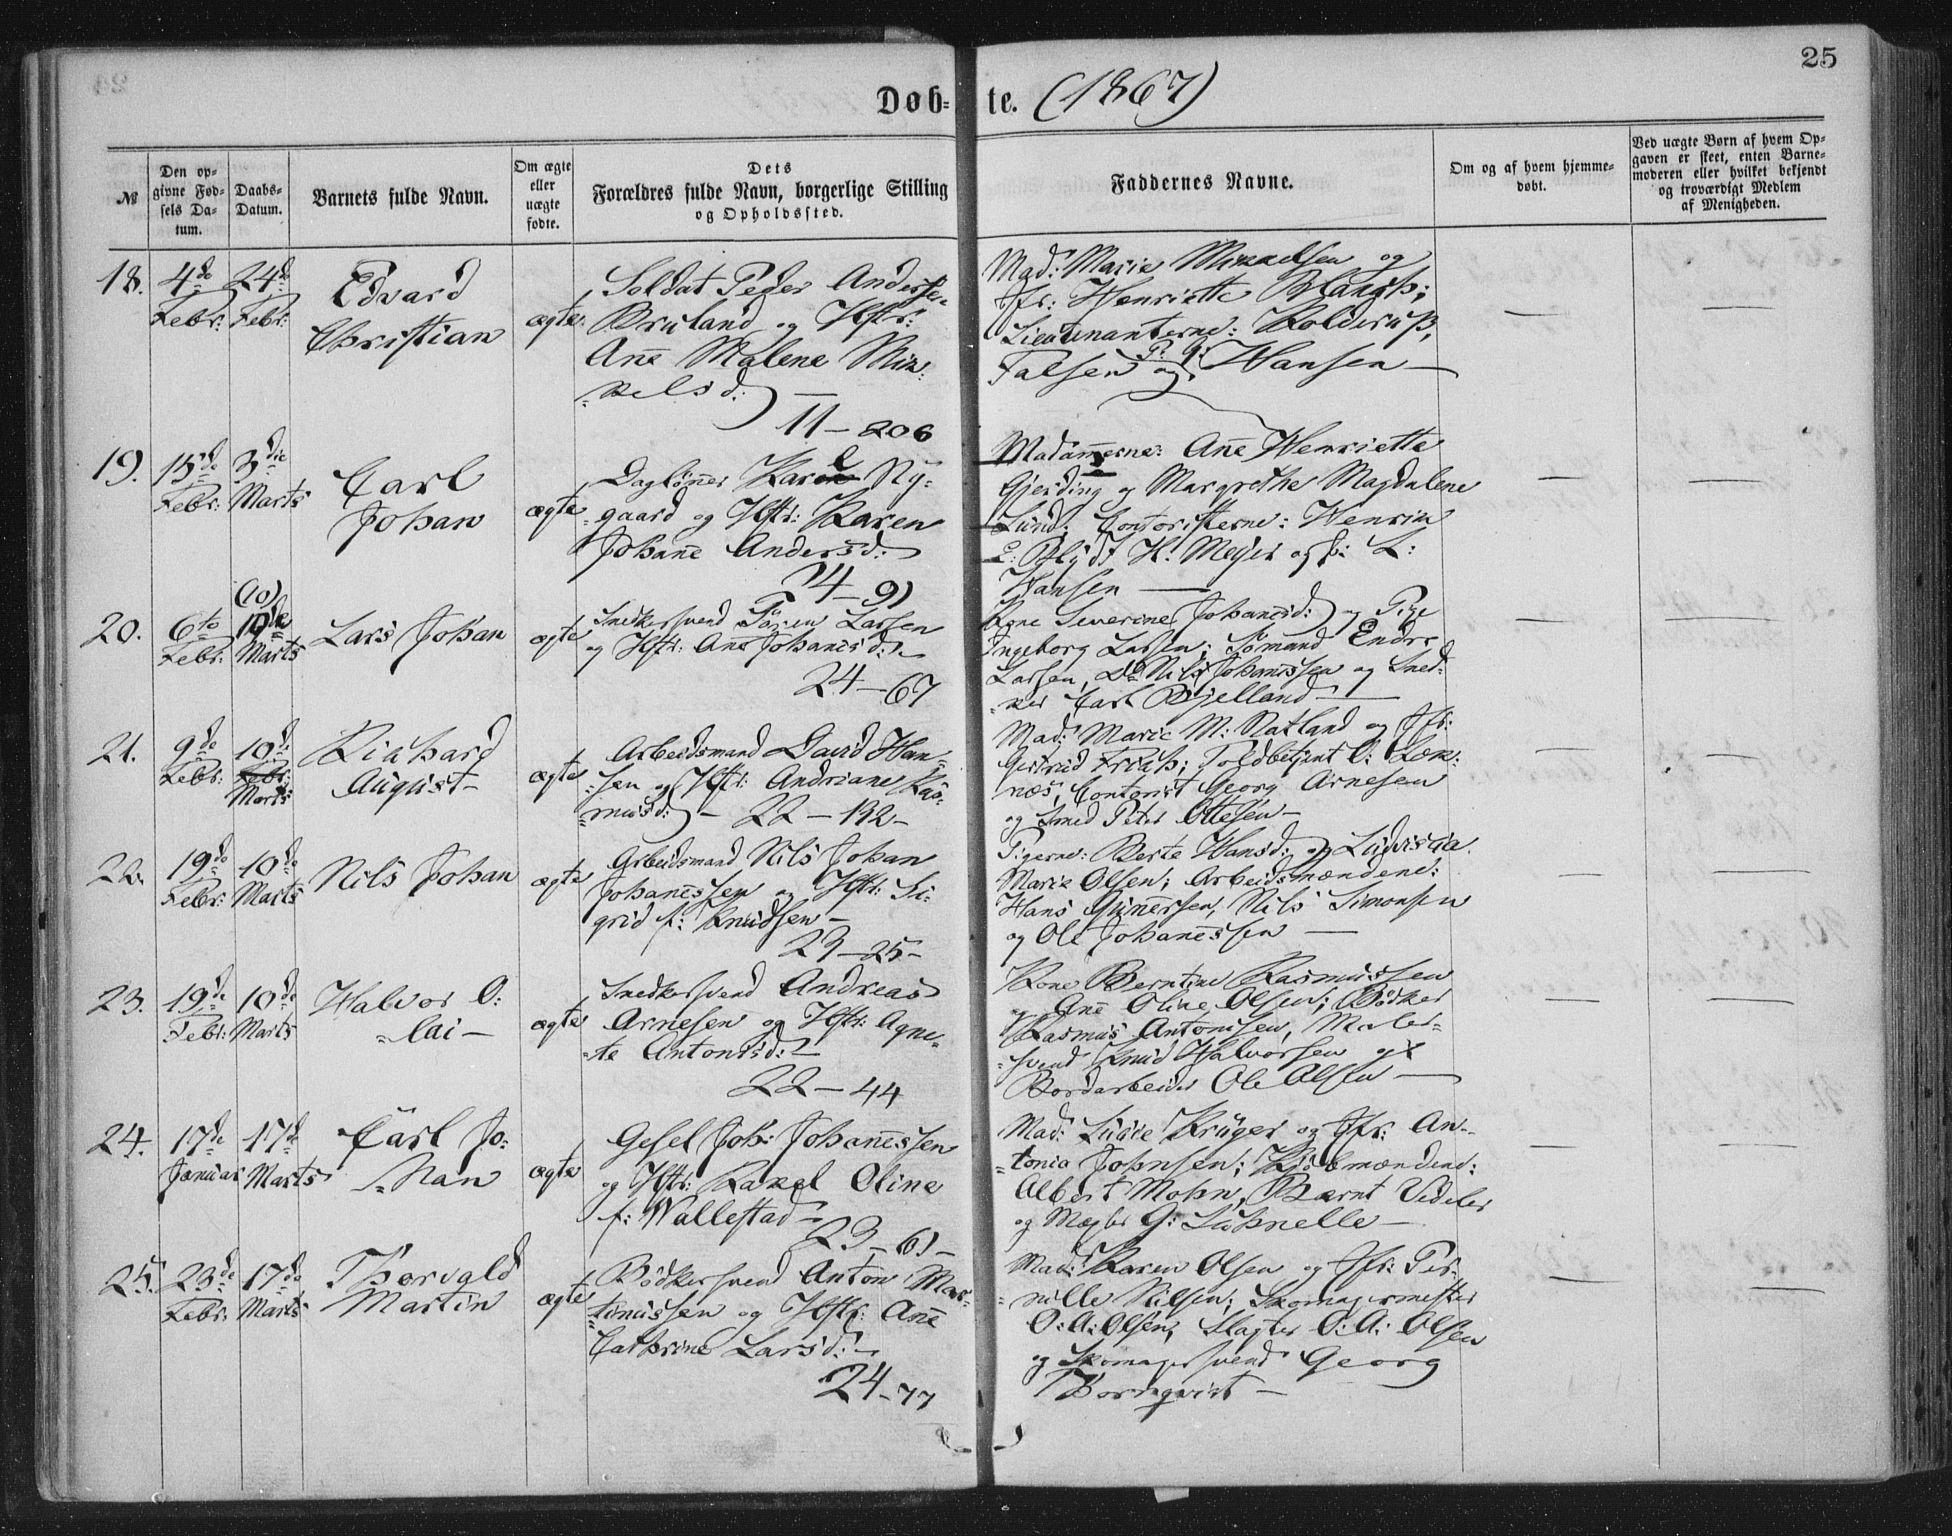 25
Døb-te. (1867)
№
Den op-
givne Fød-
sels Da-
tum.
Daabs-
Datum.
Barnets fulde Navn.
Om ægte
eller
uægte
fødte.
Dets
Forældres fulde Navn, borgerlige Stilling
og Opholdssted.
Faddernes Navne.
Om og af hvem hjemme-
døbt.
Ved uægte Børn af hvem Op-
gaven er skeet, enten Barne-
moderen eller hvilket bekjendt
og troværdigt Medlem
af Menigheden.
18.
4de
Febr:
24de
Febr:
Edvard
Christian
ægte
Soldat Peder Anderse
Bruland og Hstr:
Ane Malene Mik-
kelsd:
11 - 206
Mad: Marie Mikkelsen og
Jfr: Henriette
Lieutenanterne: Kolderup,
Falsen og P. G: Hansen —
19.
15de
Febr:
3die
Marts
Carl
Johan
ægte
Dagløner Karl Ny-
gaard og Hstr: Karen
Johane Andersd:
24 - 91
Madamerne: Ane Henriette
Gjerding og Margrethe Magdalene
Lund; Contoristerne: Henrik
E: Blydt, H. Meyer og L:
Hansen —
20.
6te
Febr:
(10)
10de
Marts
Lars Johan
ægte
Snedkersvend Sören Larsen
og Hstr: Ane Johanesd:
24 - 67
Kone Severine Johanesd: og Pige
Ingeborg Larsen; Sömand Endre
Larsen, Do Nils Johanessen og Sned-
ker Carl Bjelland —
21.
9de
Febr:
10de
Febr:
Marts
Richard
August
ægte
Arbeidsmand David Han-
sen og Hstr: Andriane Ras-
musd: -
22 - 192 -
Mad: Marie M: Natland og Jfr:
Gertrud Friis; Toldbetjent O: Lek-
næs, Contorist Georg Arnesen
og Smed Peter Ottesen -
22.
19de
Febr:
10de
Marts
Nils Johan
ægte
Arbeidsmand Nils Johan
Johanessen og Hstr: Si-
grid f: Knudsen -
23 - 25 -
Pigerne: Berte Hansd: og Ludvicia
Marie Olsen; Arbeidsmændene:
Hans Gunersen, Nils Simonsen
og Ole Johanessen —
23.
19de
Febr:
10de
Marts
Halvor O-
lai -
ægte
Snedkersvend Andreas
Arnesen og Hstr: Agne-
te Antonisd: -
22 - 44
Kone Berntine Rasmussen
og Ane Oline Olsen; Bödker
Rasmus Antonisen, Maler-
svend Knud Halvorsen og
Bordarbeider Ole Olsen —
24.
17de
Januar
17de
Marts
Carl Jo-
han
ægte
Gesel Joh: Johanessen
og Hstr: Rakel Oline
f: Wallestad -
23 - 61 -
Mad: Lucie Krüger og Jfr: An-
tonia Johnsen; Kjöbmændene:
Albert Mohn, Bernt Vedeler
og Mægler G:
25.
23de
Febr:
17de
Marts
Thorvald
Martin
ægte
Bödkersvend Anton Mar-
tinussen og Hstr: Ane
Cathrine Larsd: -
24 - 77
Mad: Karen Olsen og Jfr: Per-
nille Nilsen; Skomagermester
O: A: Olsen, Slagter O: A: Olsen
og Skomagersvend Georg
Thornqvist -